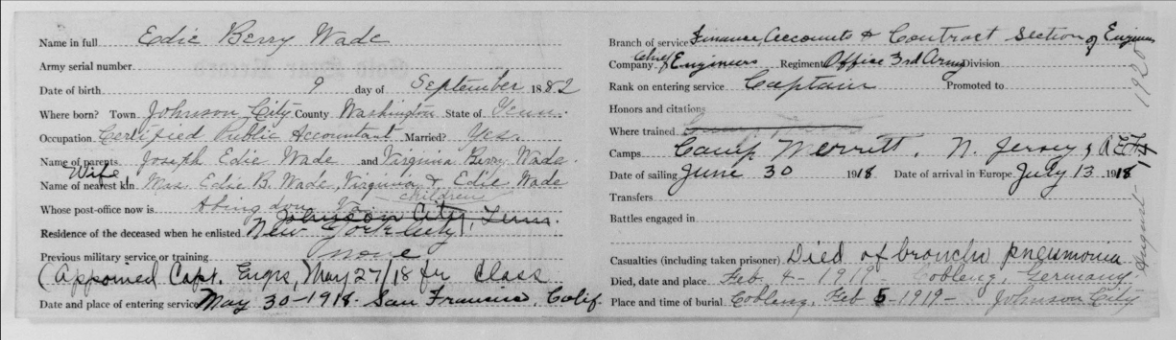 Name in full Edie Berry Wade
Army serial number
Date of birth 9 day of September 1882
Where born? Town Johnson City County Washington State of Tenn.
Occupation Certified Public Accountant Married? Yes.
Name of parents Joseph Edie Wade and Virginia Berry Wade.
Wife
Name of nearest kin Mrs. Edie B. Wade, Virginia & Edie Wade
children
Whose post-office now is Abingdon Va. Johnson City, Tenn.
Residence of the deceased when he enlisted New York City
Previous military service or training none
(Appoined Capt. Engrs, May 27/18 fr Class
Date and place of entering service May 30-1918- San Francisco, Calif.
Branch of service Finance, Accounts & Contract Section of Engineers
Company Chief Engineers Regiment Office 3rd Army Division
Rank on entering service Captain Promoted to
Honors and citations
Where trained
Camps Camp Merritt, N. Jersey, & A.E.F.
Date of sailing June 30 1918 Date of arrival in Europe July 13 1918
Transfers
Battles engaged in
Casualties (including taken prisoner) Died of broncho pneumonia
Died, date and place Feb 4-1919- Coblenz, Germany.
Place and time of burial Coblenz, Feb 5-1919- Johnson City
August-14-1920